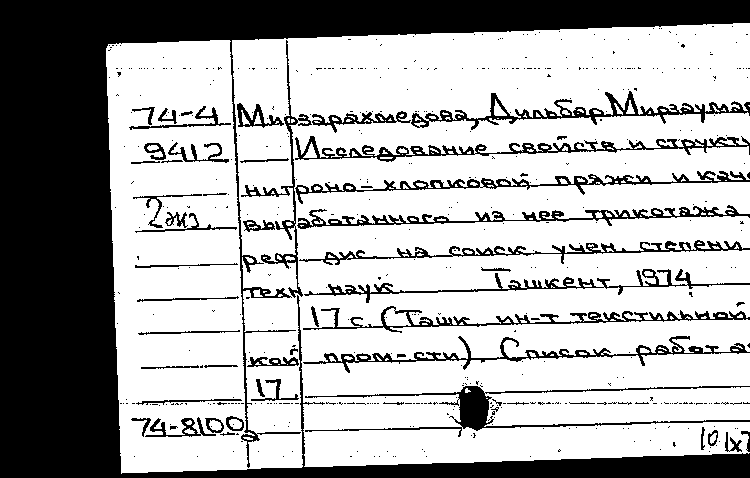 74-4 Мирзарахмедова, Дильбар Мирзаумар
9412 Исследование свойств и структу
нитроно-хлопковой пряжи и каче
2 экз. выработанного из нее трикотажа
реф. дис. на соиск. учен. степени
техн. наук. Ташкент, 1974
17 с. (Ташк. ин-т текстильной
кой пром-сти). Список работ ав
17.
74-8100